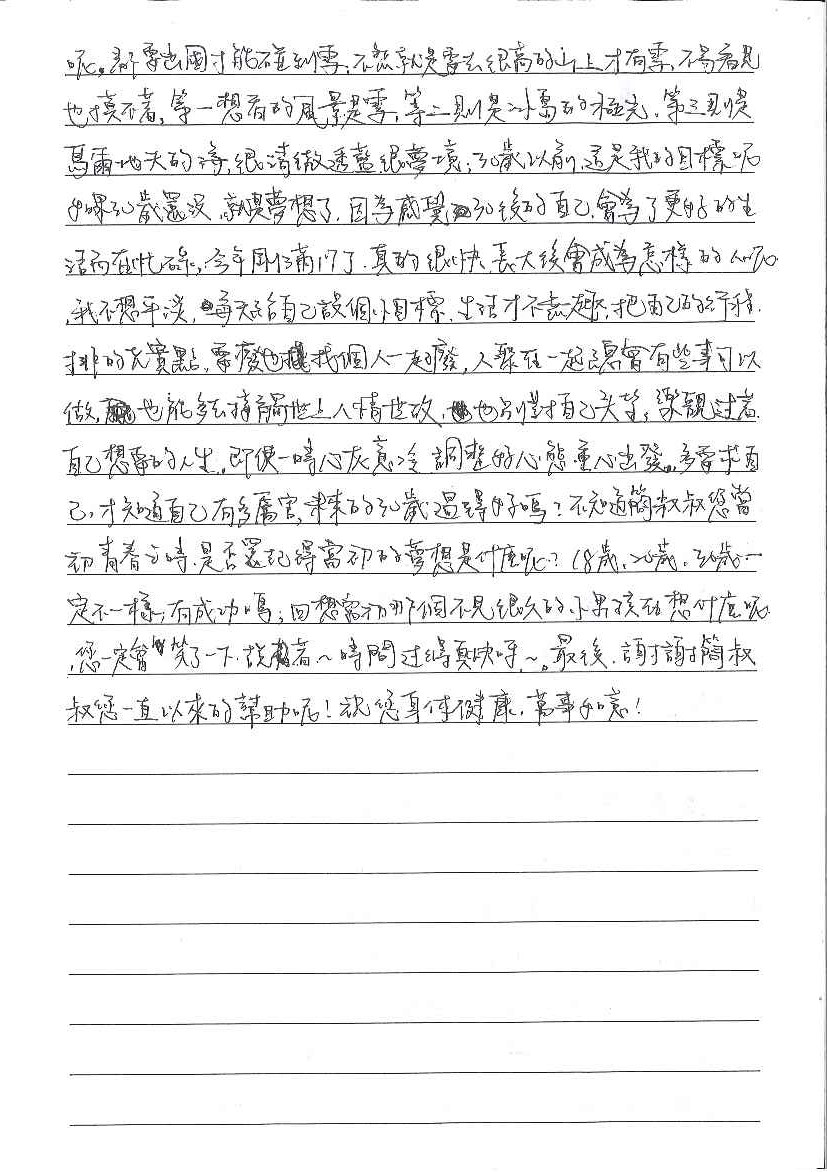 呢。都要出國才能碰到雪,不然就是要去很高的山上才有雪,不易看見
也摸不著,第一想看的風景是雪,第二則是冰島的極光,第三則是
馬爾地夫的海,很清澈透藍很夢境;30歲以前,這是我的目標呢
如果30歲還沒,就是夢想了,因為感覺30後的自己,會為了更好的生
活而在忙碌,今年剛好滿17了,真的很快,長大後會成為怎樣的人呢
,我不想平淡,每天給自己設個小目標,生活才不無趣,把自己的行程
排的充實點,要廢也找個人一起廢,人聚在一起總會有些事可以
做,也能多去接觸世上人情世故,也別對自己失望,樂觀過著
自己想要的人生,即使一時心灰意冷,調整好心態重心出發。多要求自
己,才知道自己有多厲害,未來的30歲過得好嗎?不知道簡叔叔您當
初青春之時,是否還記得當初的夢想是什麼呢?18歲、20歲、30歲一
定不一樣,有成功嗎;回想當初那個不見很久的小男孩在想什麼呢
,您一定會笑了一下,說著~時間過得真快呀~。最後,謝謝簡叔
叔您一直以來的幫助呢!祝您身体健康,萬事如意!